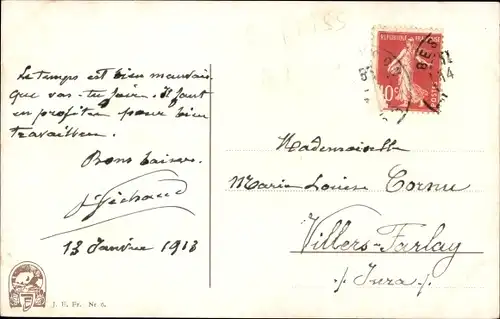 155
REPUBLIQUE FRANÇAISE
10 c
POSTES
BES
14
Le temps est bien mauvais
que vas-tu faire. Il faut
en profiter pour bien
travailler.
Bons baisers
13 Janvier 1913
Mademoiselle
Marie Louise Cornu
Villers-Farlay
./ Jura /.
J. E. Pr. Nr 6.